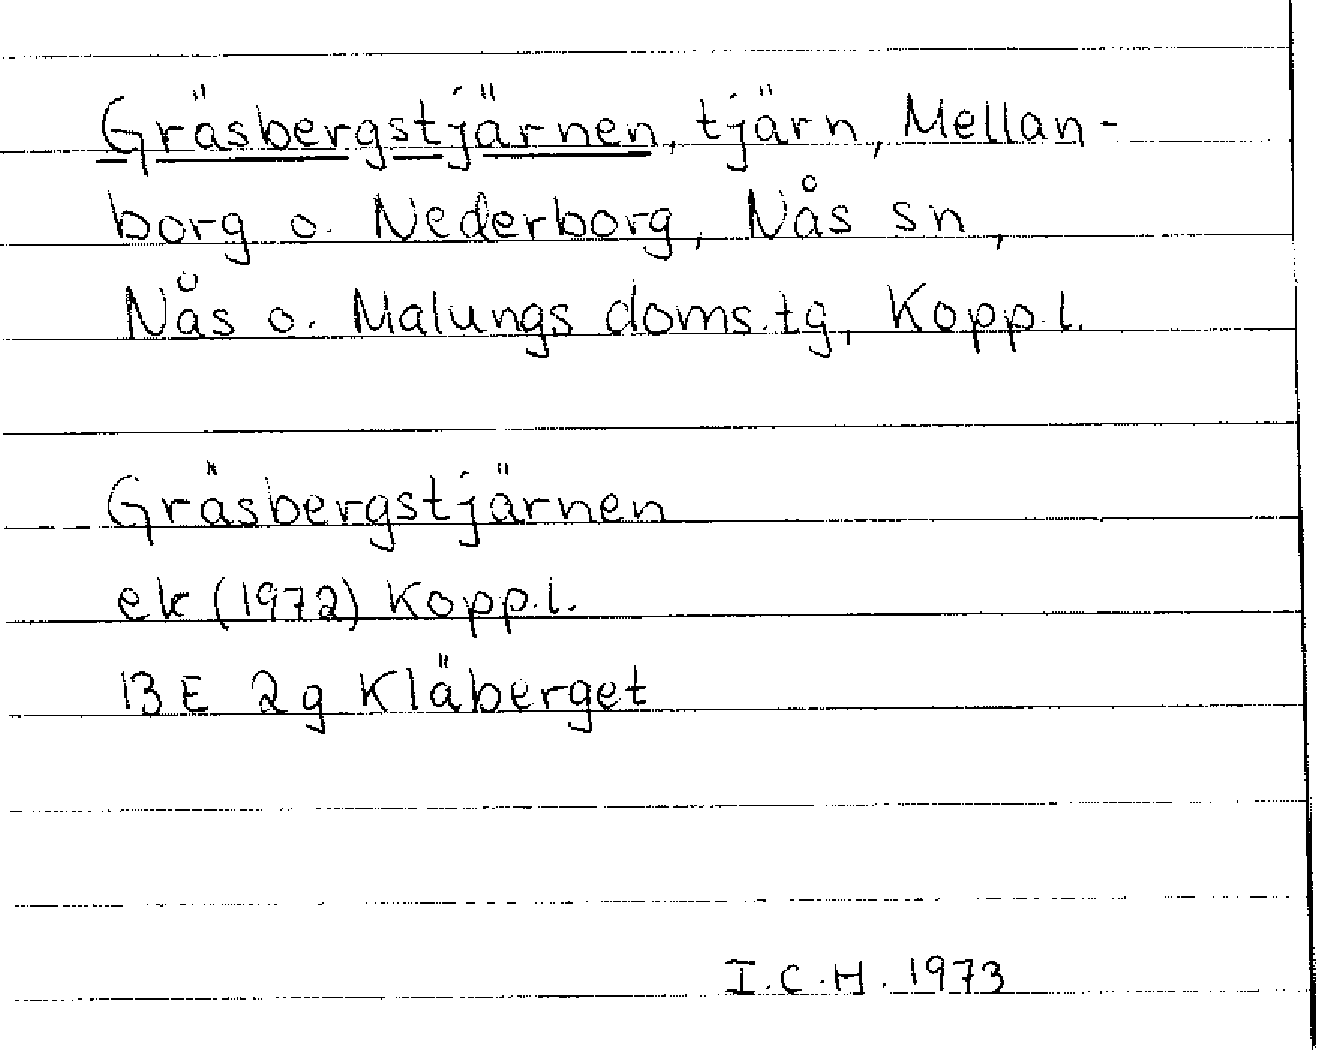 Gräsbergstjärnen, tjärn, Mellan-
borg o. Nederborg, Nås sn,
Nås o. Malungs doms.tg, Kopp.l.
Gräsbergstjärnen
ek (1972) Kopp.l.
13 E 2g Kläberget
I.C.H. 1973